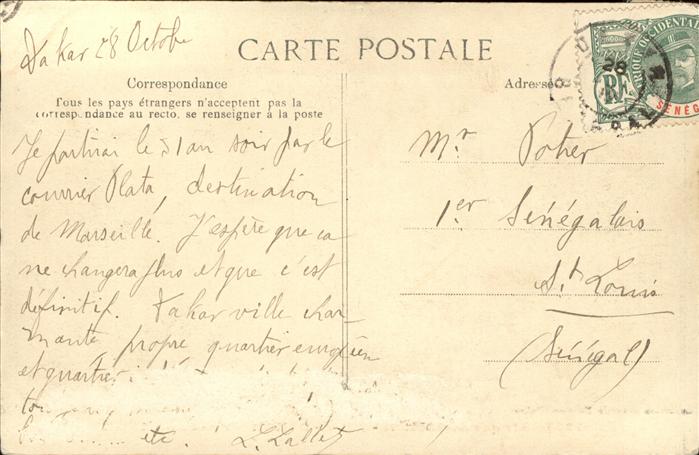 Dakar 28 Octobre
CARTE POSTALE
Correspondance
Tous les pays étrangers n'acceptent pas la
correspondance au recto, se renseigner à la poste
Adresse
28
RF
AFRIQUE OCCIDENTALE
SÉNÉG
Je partirai le 31 au soir par le
courrier Plata, destination
de Marseille. J'espère que ca
ne changera plus et que c'est
définitif. Dakar ville char
mante, propre quartier européen
et quartier
L. Lallet
Mr Poher
1er Sénégalais
St Louis
(Sénégal)